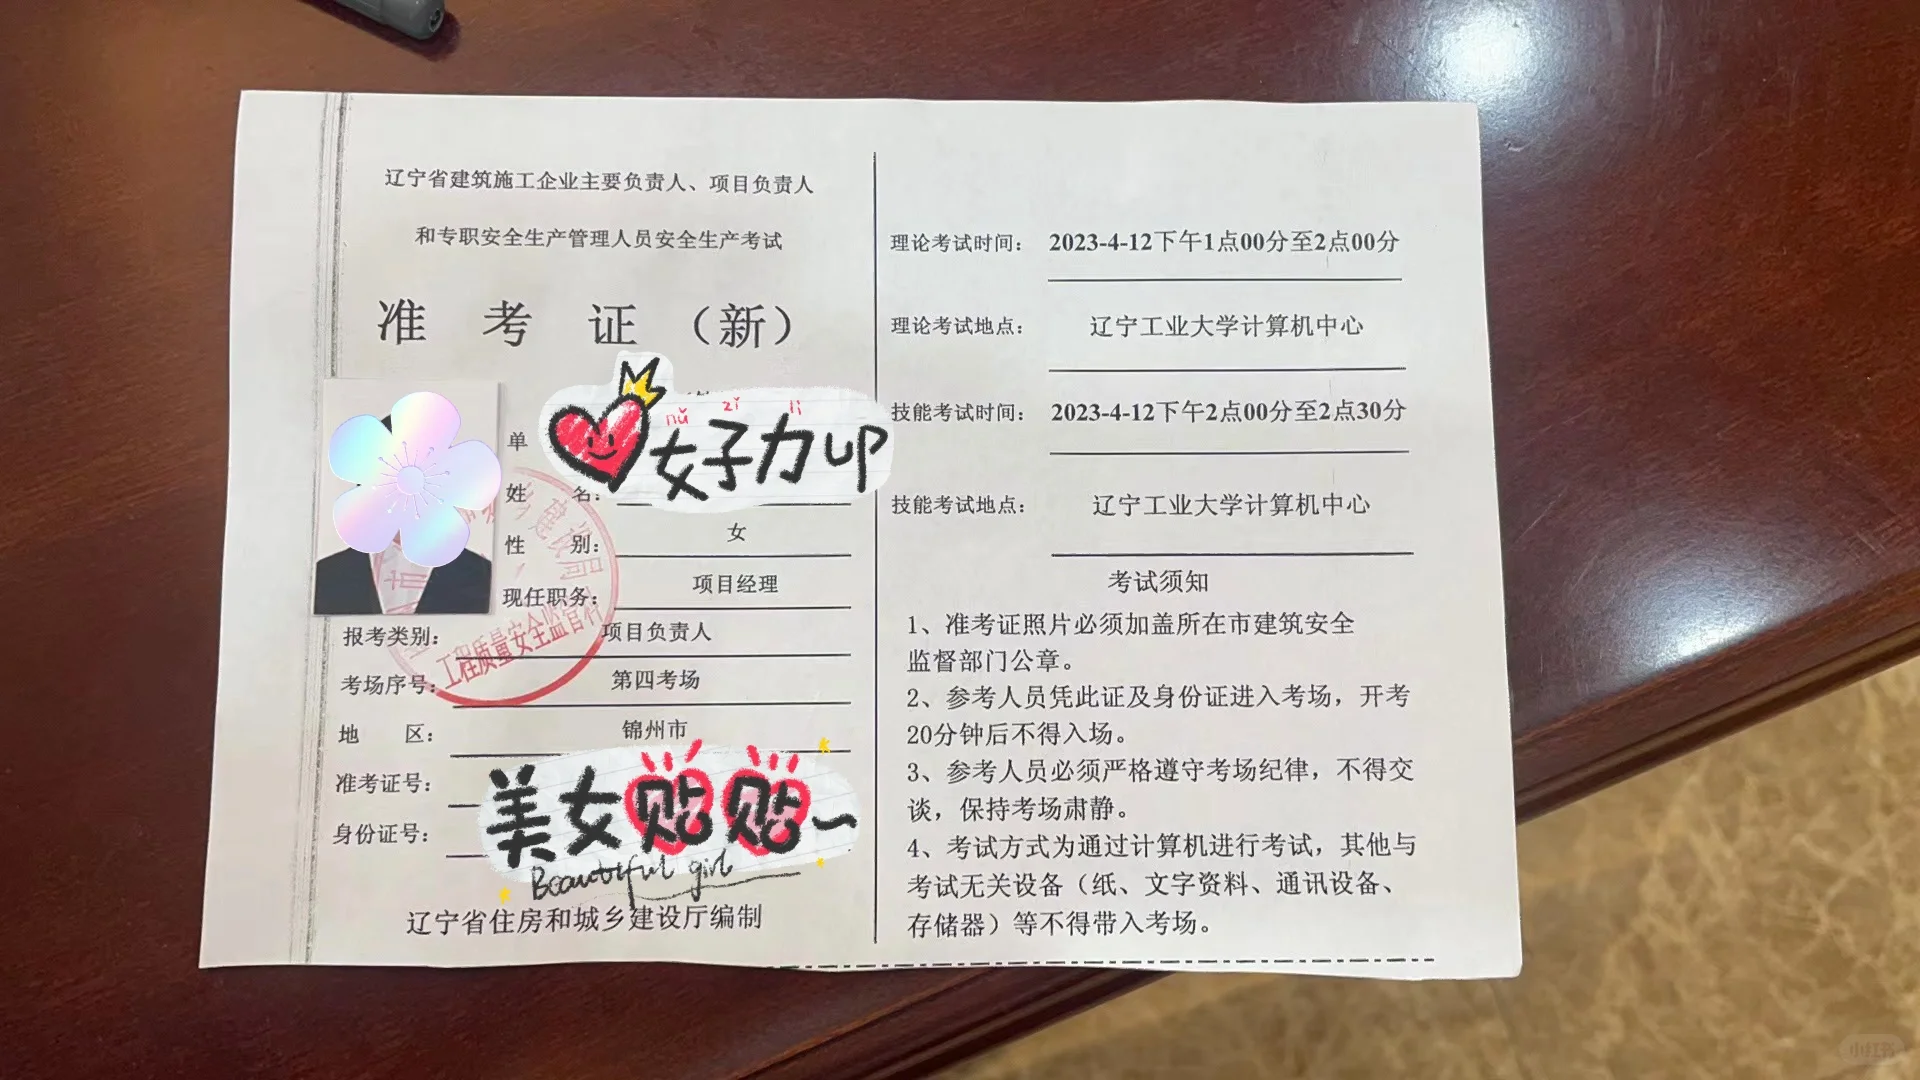 辽宁省建筑施工企业主要负责人、项目负责人
和专职安全生产管理人员安全生产考试
准 考 证 （新）
单
nǚ zǐ lì
女子力up
姓 名：
性 别： 女
现任职务： 项目经理
报考类别： 项目负责人
考场序号： 第四考场
地 区： 锦州市
准考证号：
身份证号：
美女贴贴~
Beautiful girl
辽宁省住房和城乡建设厅编制
建设局
工程质量安全监管科
理论考试时间： 2023-4-12下午1点00分至2点00分
理论考试地点： 辽宁工业大学计算机中心
技能考试时间： 2023-4-12下午2点00分至2点30分
技能考试地点： 辽宁工业大学计算机中心
考试须知
1、准考证照片必须加盖所在市建筑安全
监督部门公章。
2、参考人员凭此证及身份证进入考场，开考
20分钟后不得入场。
3、参考人员必须严格遵守考场纪律，不得交
谈，保持考场肃静。
4、考试方式为通过计算机进行考试，其他与
考试无关设备（纸、文字资料、通讯设备、
存储器）等不得带入考场。
小红书